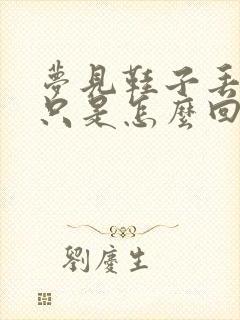 夢見鞋子丟
只是怎麼回
劉慶生